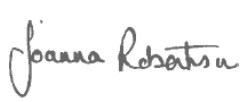 Joanna Robertson